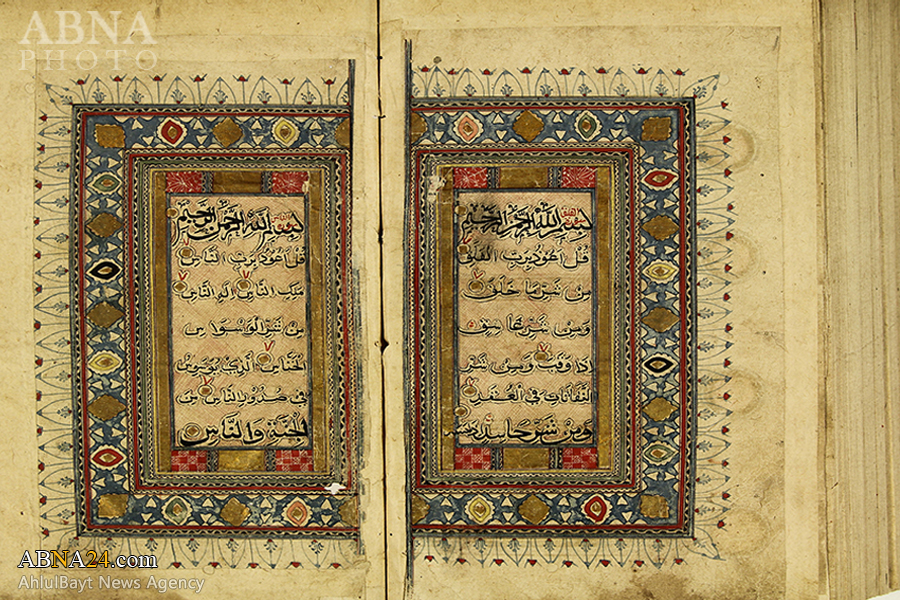 ABNA
PHOTO
بسم الله الرحمن الرحيم
قل اعوذ برب الفلق
من شر ما خلق
ومن شر غاسق
اذا وقب ومن شر
النفاثات في العقد
ومن شر حاسد
بسم الله الرحمن الرحيم
قل اعوذ برب الناس
ملك الناس اله الناس
من شر الوسواس
الخناس الذي يوسوس
في صدور الناس من
الجنة والناس
ABNA24.com
AhlulBayt News Agency